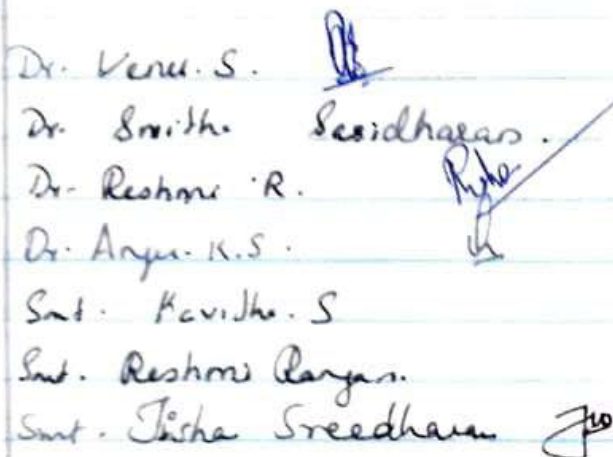 Dr. Venu. S.
Dr. Smitha Sasidharan.
Dr. Reshmi R.
Dr. Anju. K.S.
Smt. Kavitha. S
Smt. Reshmi Rangan.
Smt. Jisha Sreedharan